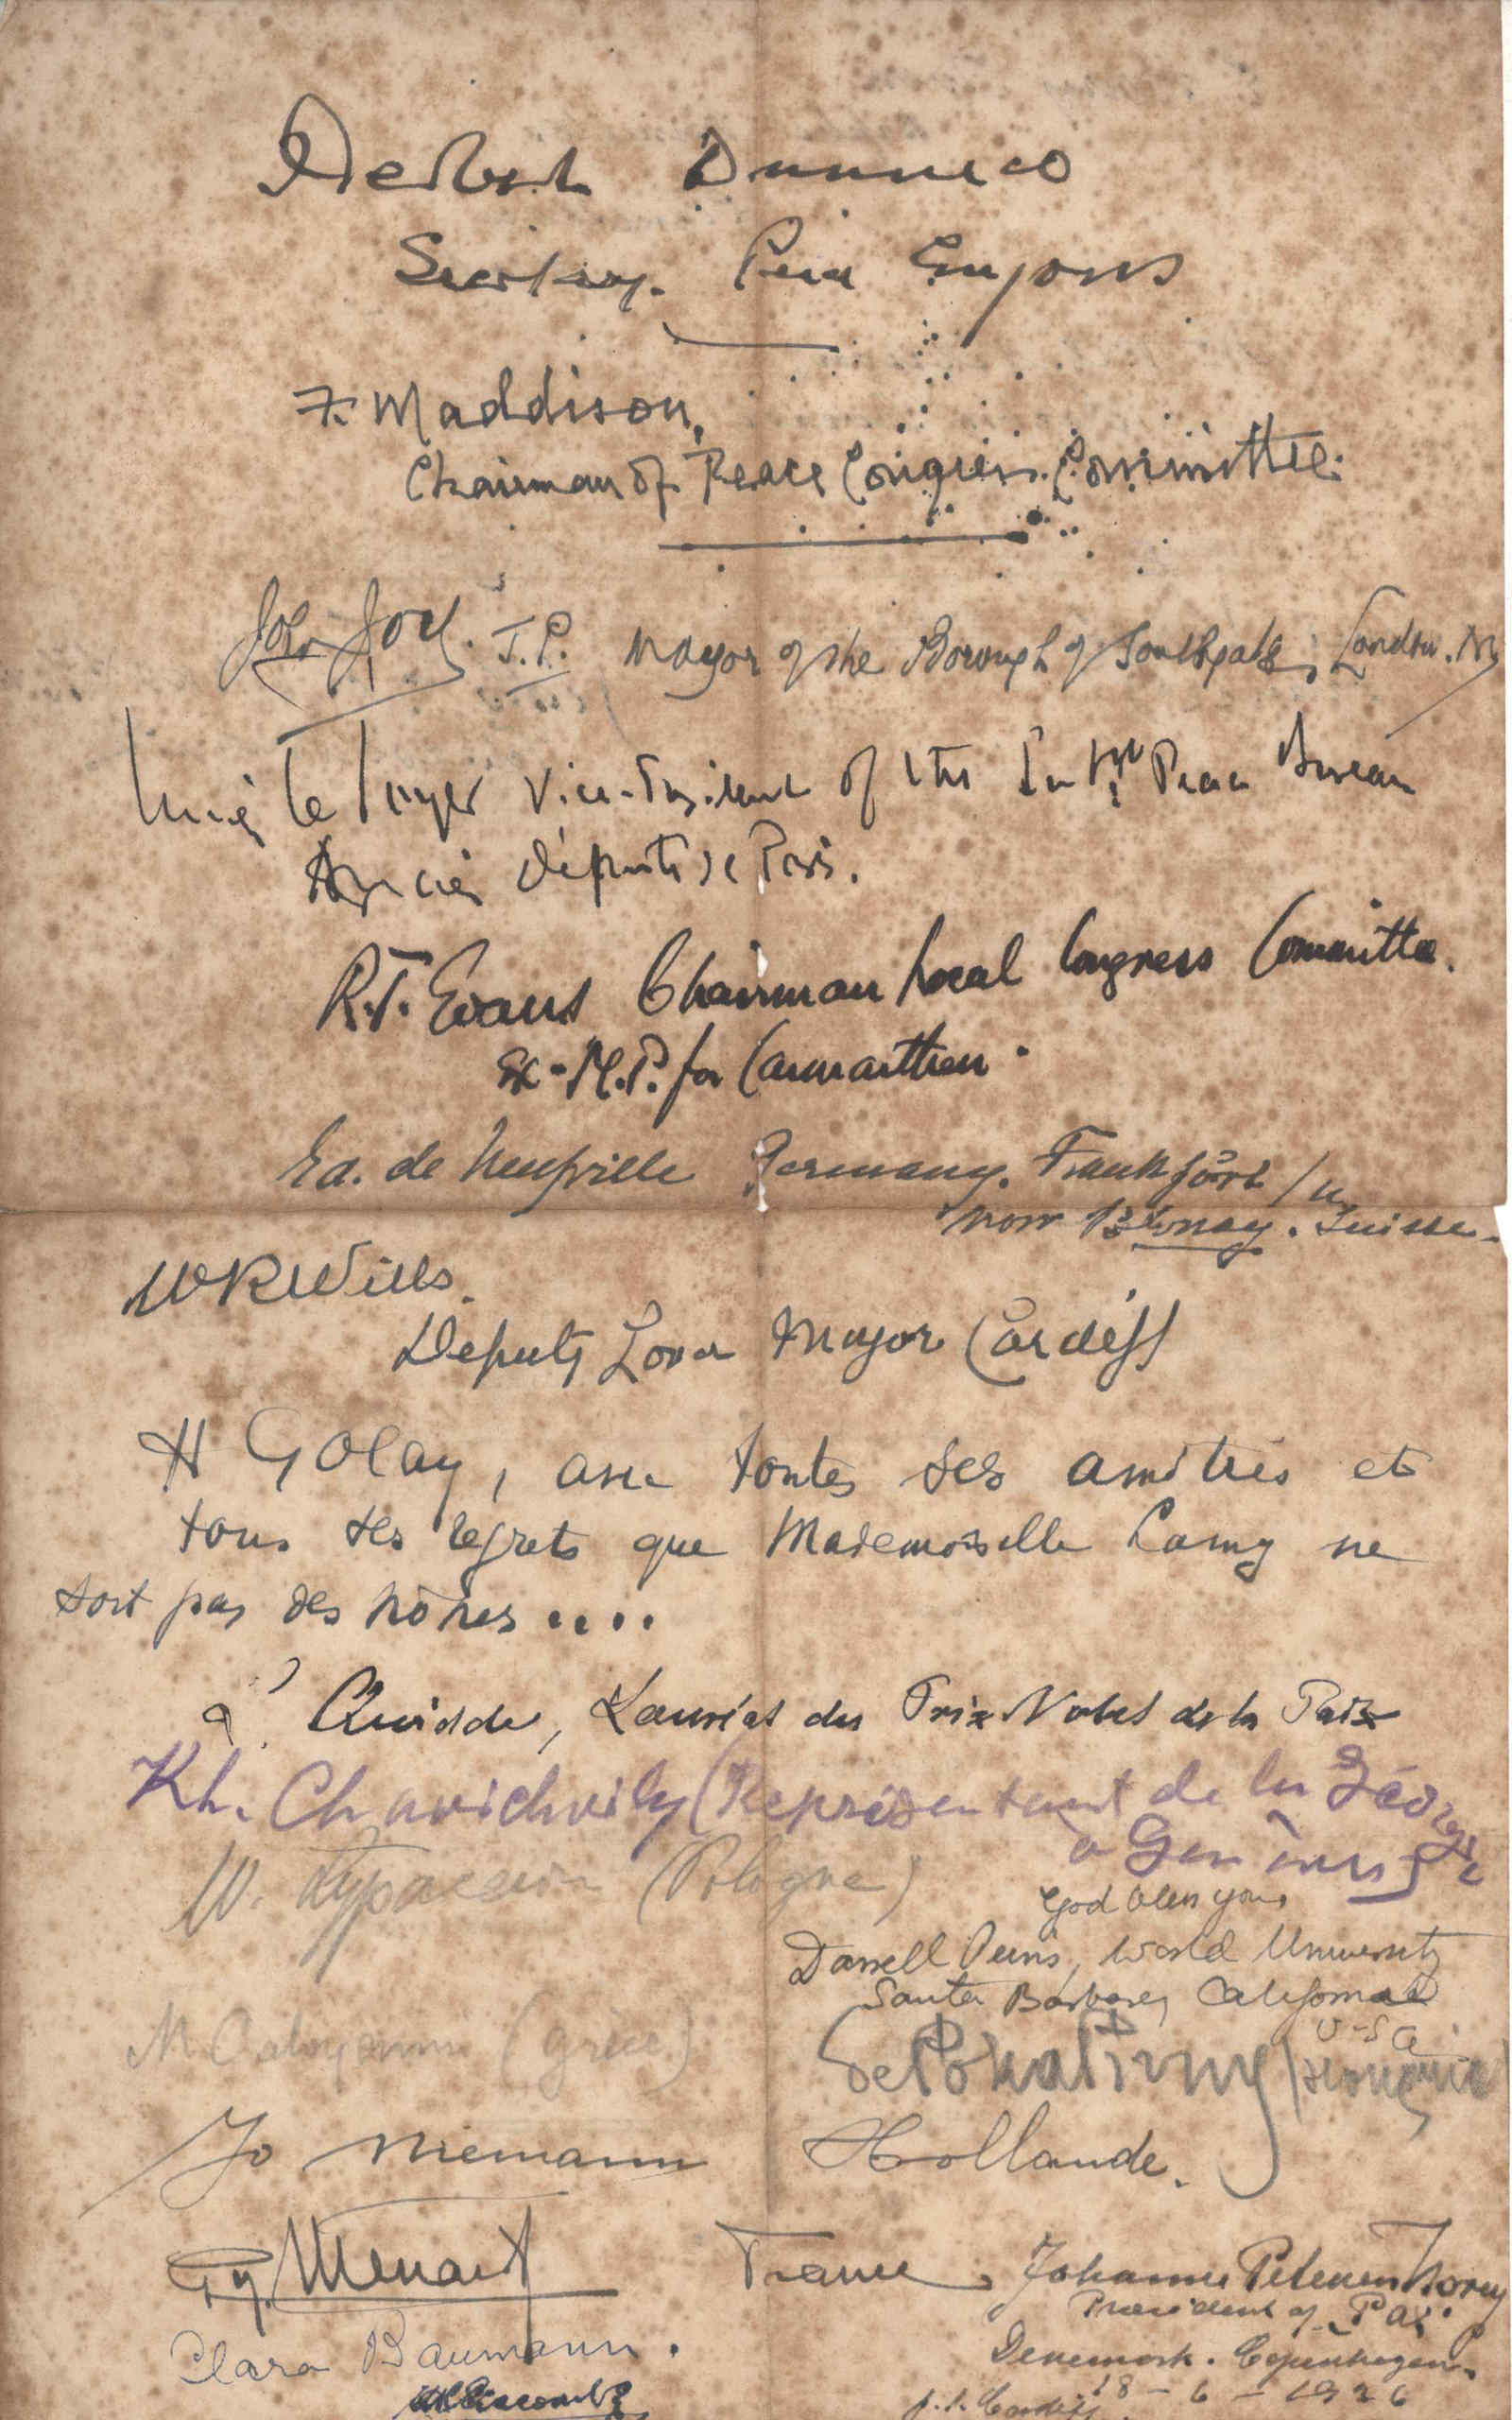 Herbert Dunnico
Secretary. Peace Congress
F. Maddison,
Chairman of Peace Congress Committee.
John Joy. J.P. Mayor of the Borough of Southgate, London. N
Lucien Le Foyer Vice-President of the Intl Peace Bureau
Ancien député de Paris.
R.T. Evans Chairman Local Congress Committee.
Ex-M.P. for Carmarthen.
Ed. de Neufville Germany. Frankfort /
now Blonay. Suisse.
W R Wills.
Deputy Lord Mayor Cardiff
H Golay, avec toutes ses amitiés et
tous ses regrets que Mademoiselle Camy ne
soit pas des nôtres....
L. Quidde, Lauréat du Prix Nobel de la Paix
Kh. Chavichvily (Représentant de la Géorgie
à Genève)
W. (Pologne)
God bless you,
Darrell, World University
Santa Barbara, California
U-S A
M (Grèce)
de Pokativny
Jo Niemann Hollande.
Menart France.
Johanne Petersen Norup
President of Pax.
Denemark. Copenhagen.
p.t. Cardiff 18-6-1936
Clara Baumann.